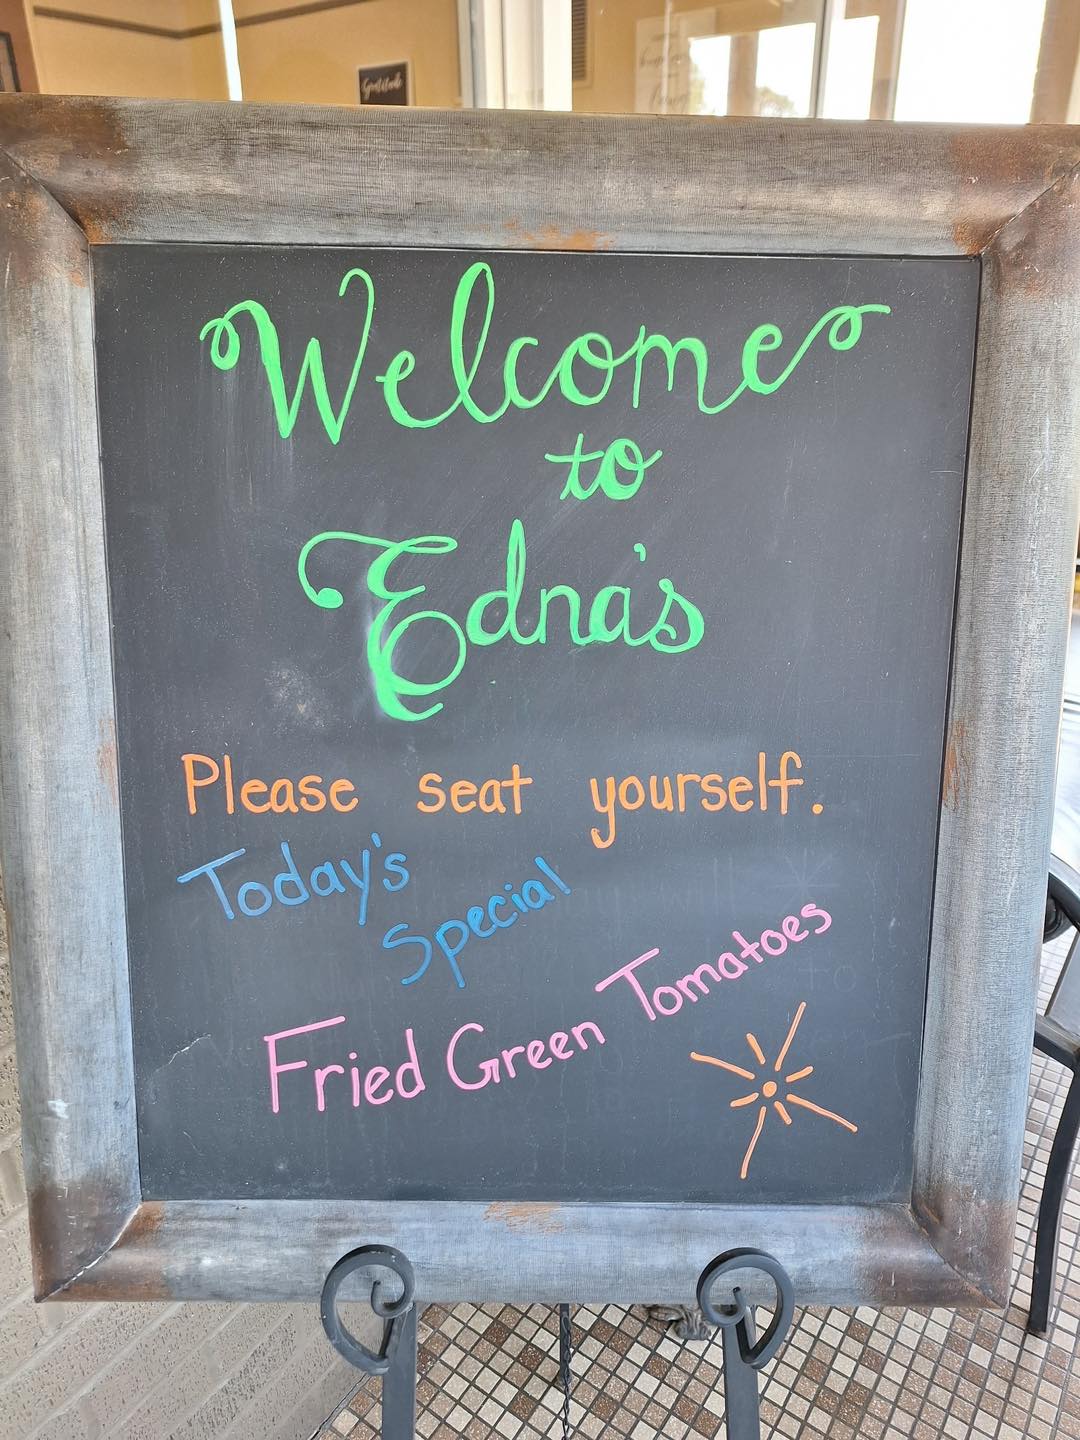 Gratitude
Welcome
to
Edna's
Please seat yourself.
Today's
Special
Fried Green Tomatoes